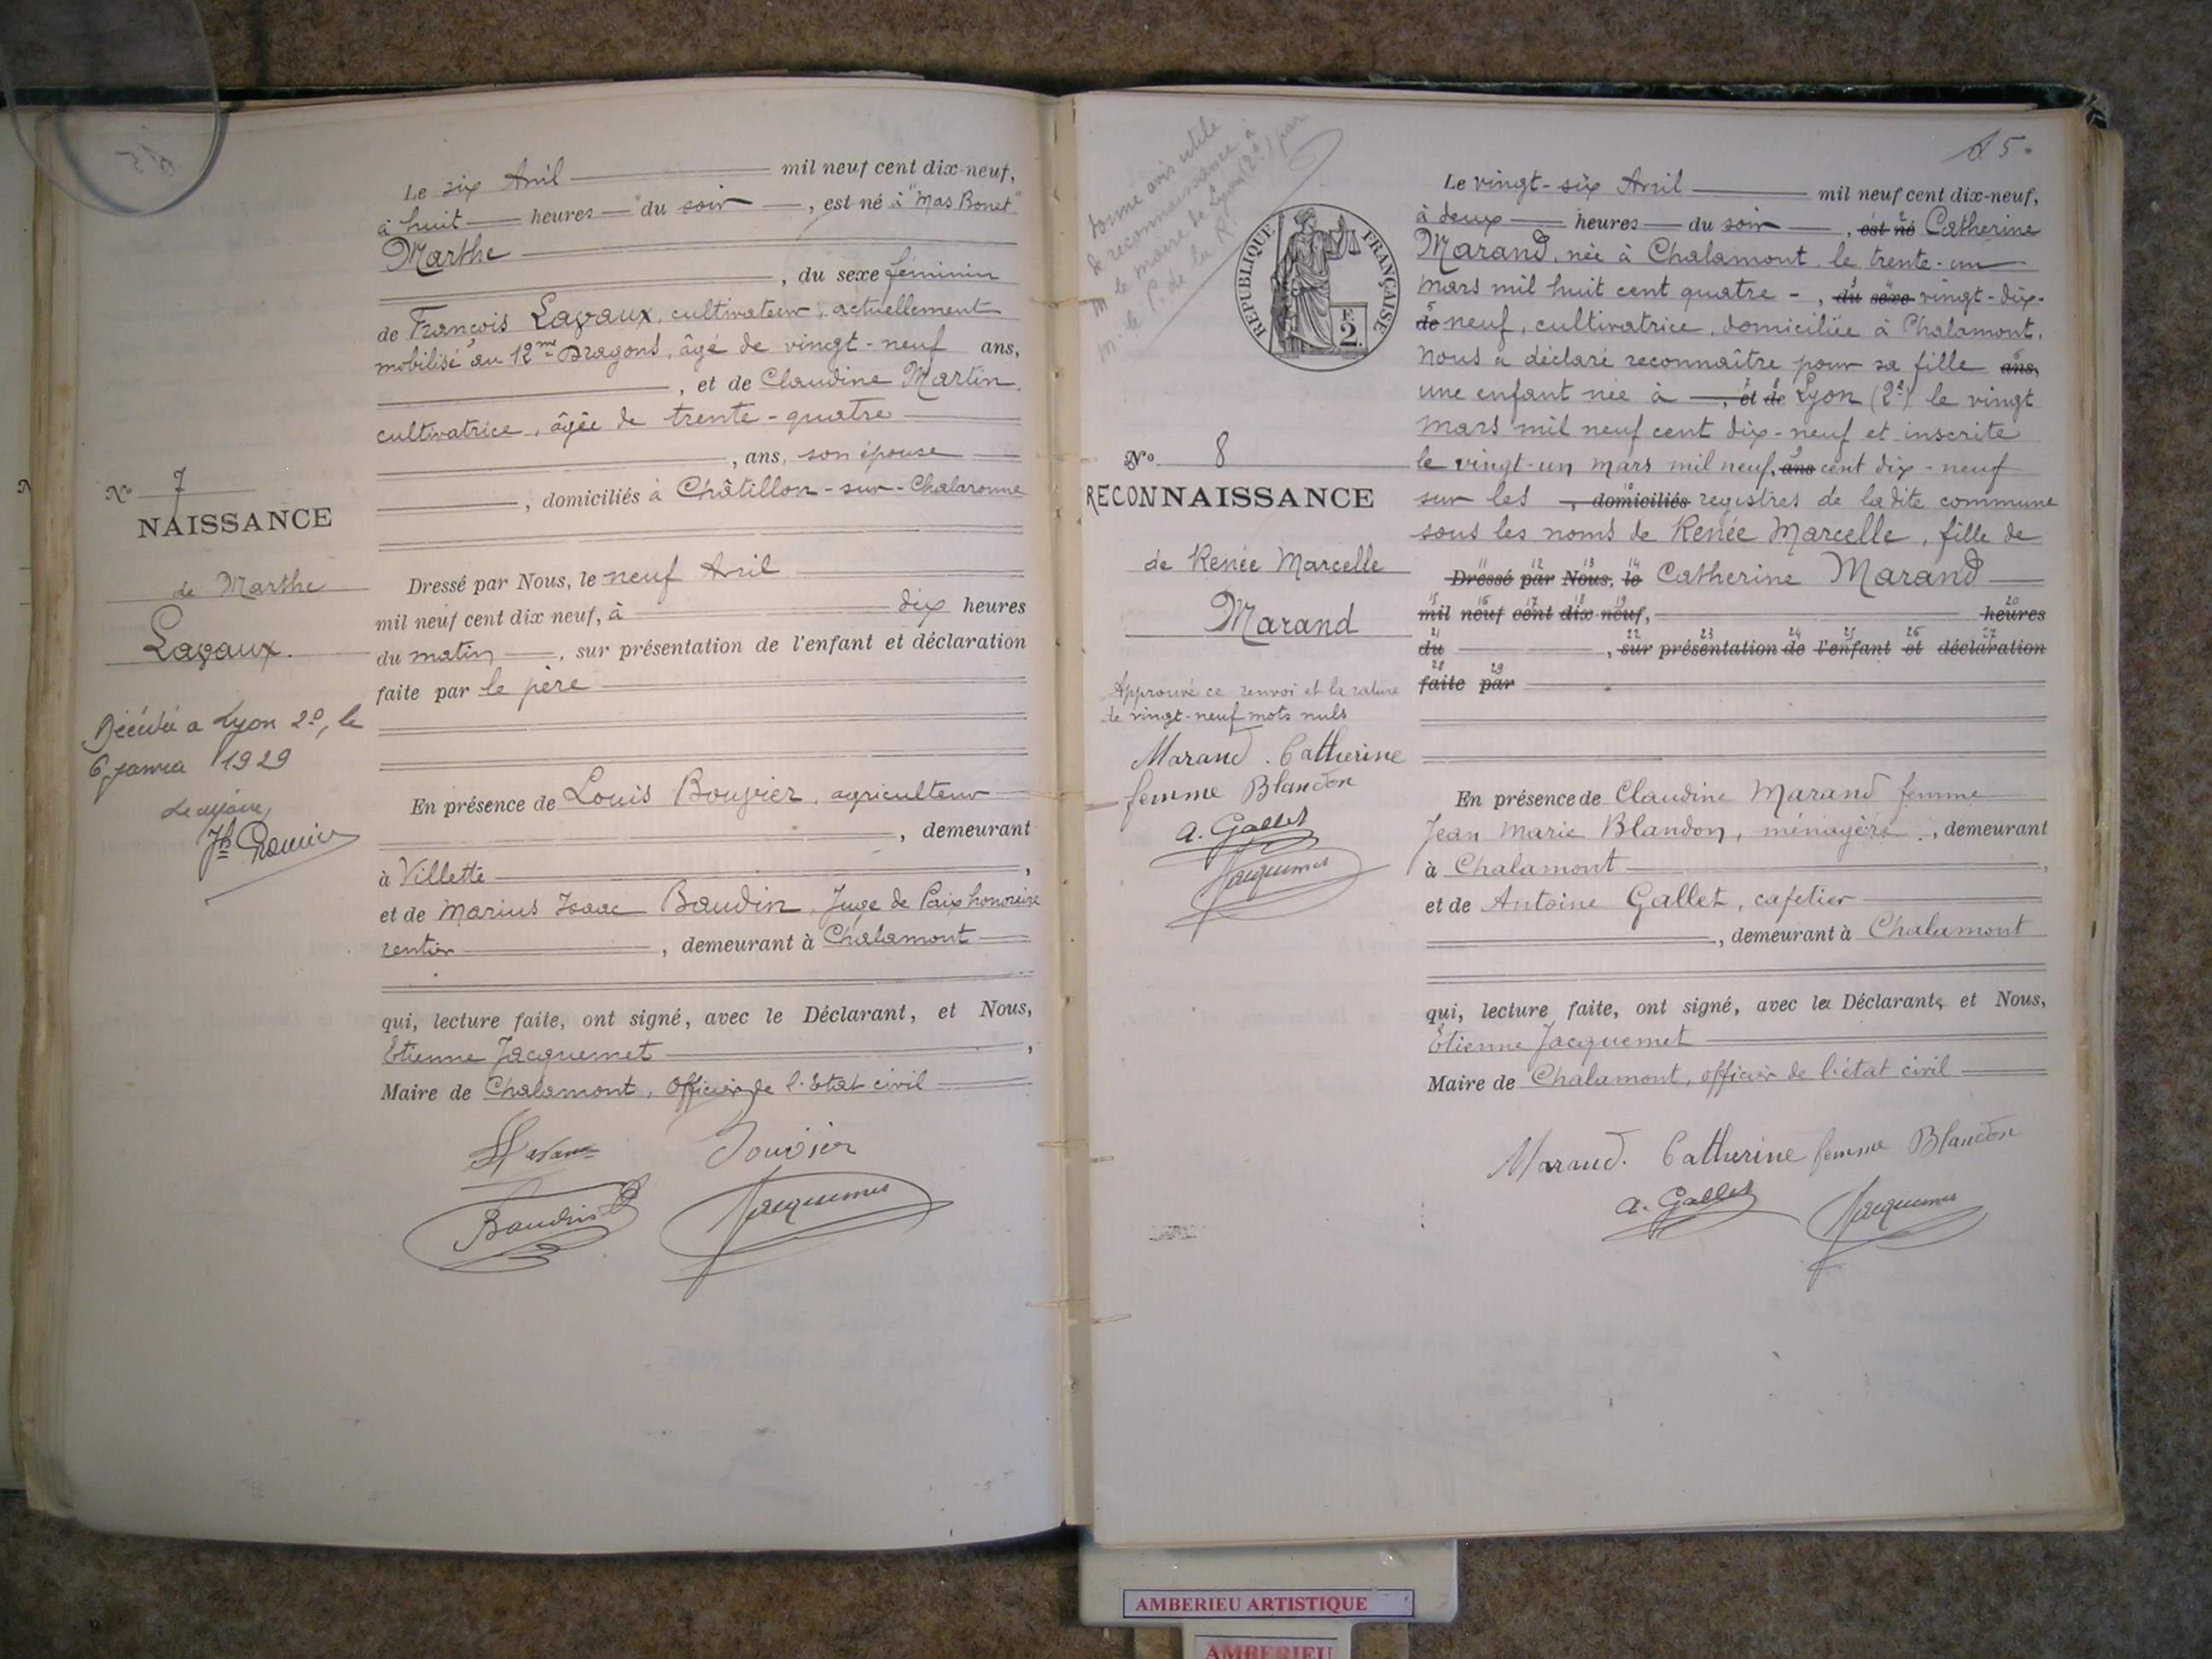 Le six Avril mil neuf cent dix-neuf,
à huit heures du soir, est né à "Mas Bonet"
Marthe
, du sexe féminin
de François Lavaux, cultivateur, actuellement
mobilisé au 12me Dragons, âgé de vingt-neuf ans,
, et de Claudine Martin,
cultivatrice, âgée de trente-quatre
, ans, son épouse
, domiciliés à Châtillon-sur-Chalaronne
No 7
NAISSANCE
de Marthe
Lavaux.
Décédée a Lyon 2o, le
6 janvier 1929
Dressé par Nous, le neuf Avril
mil neuf cent dix neuf, à dix heures
du matin, sur présentation de l'enfant et déclaration
faite par le père
En présence de Louis Bouvier, agriculteur
, demeurant
à Villette,
et de Marius Isaac Baudin, Juge de Paix honoraire
rentier, demeurant à Chalamont
qui, lecture faite, ont signé, avec le Déclarant, et Nous,
Etienne Jacquemet,
Maire de Chalamont, Officier de l'Etat civil
Bouvier
Baudin
Jacquemet
donné avis utile
de reconnaissance à
M le maire de Lyon (2e) par
M. le P. de la R.
REPUBLIQUE FRANÇAISE
F.
2.
15.
No 8
RECONNAISSANCE
de Renée Marcelle
Marand
Approuvé ce renvoi et la rature
de vingt-neuf mots nuls
Marand. Catherine
femme Blandon
A. Gallet
Jacquemet
Le vingt-six Avril mil neuf cent dix-neuf,
à deux heures du soir, est né Catherine
Marand, née à Chalamont, le trente-un
mars mil huit cent quatre-, du sexe vingt-dix-
de neuf, cultivatrice, domiciliée à Chalamont,
Nous a déclaré reconnaître pour sa fille ans,
une enfant née à, et de Lyon (2e) le vingt
mars mil neuf cent dix-neuf et inscrite
le vingt-un mars mil neuf, ans cent dix-neuf
sur les, domiciliés registres de ladite commune
sous les noms de Renée Marcelle, fille de
Dressé par Nous, le Catherine Marand
mil neuf cent dix neuf, heures
du, sur présentation de l'enfant et déclaration
faite par
En présence de Claudine Marand femme
Jean Marie Blandon, ménagère, demeurant
à Chalamont,
et de Antoine Gallet, cafetier
, demeurant à Chalamont
qui, lecture faite, ont signé, avec les Déclarants, et Nous,
Etienne Jacquemet
Maire de Chalamont, officier de l'état civil
Marand. Catherine femme Blandon
A. Gallet
Jacquemet
AMBERIEU ARTISTIQUE
AMBERIEU